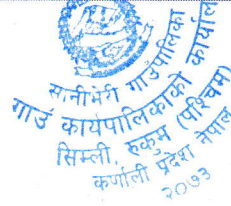 सानीभेरी गाउँपालिका
गाउँ कार्यपालिकाको कार्यालय
सिम्ली, रुकुम (पश्चिम)
कर्णाली प्रदेश नेपाल
२०७३